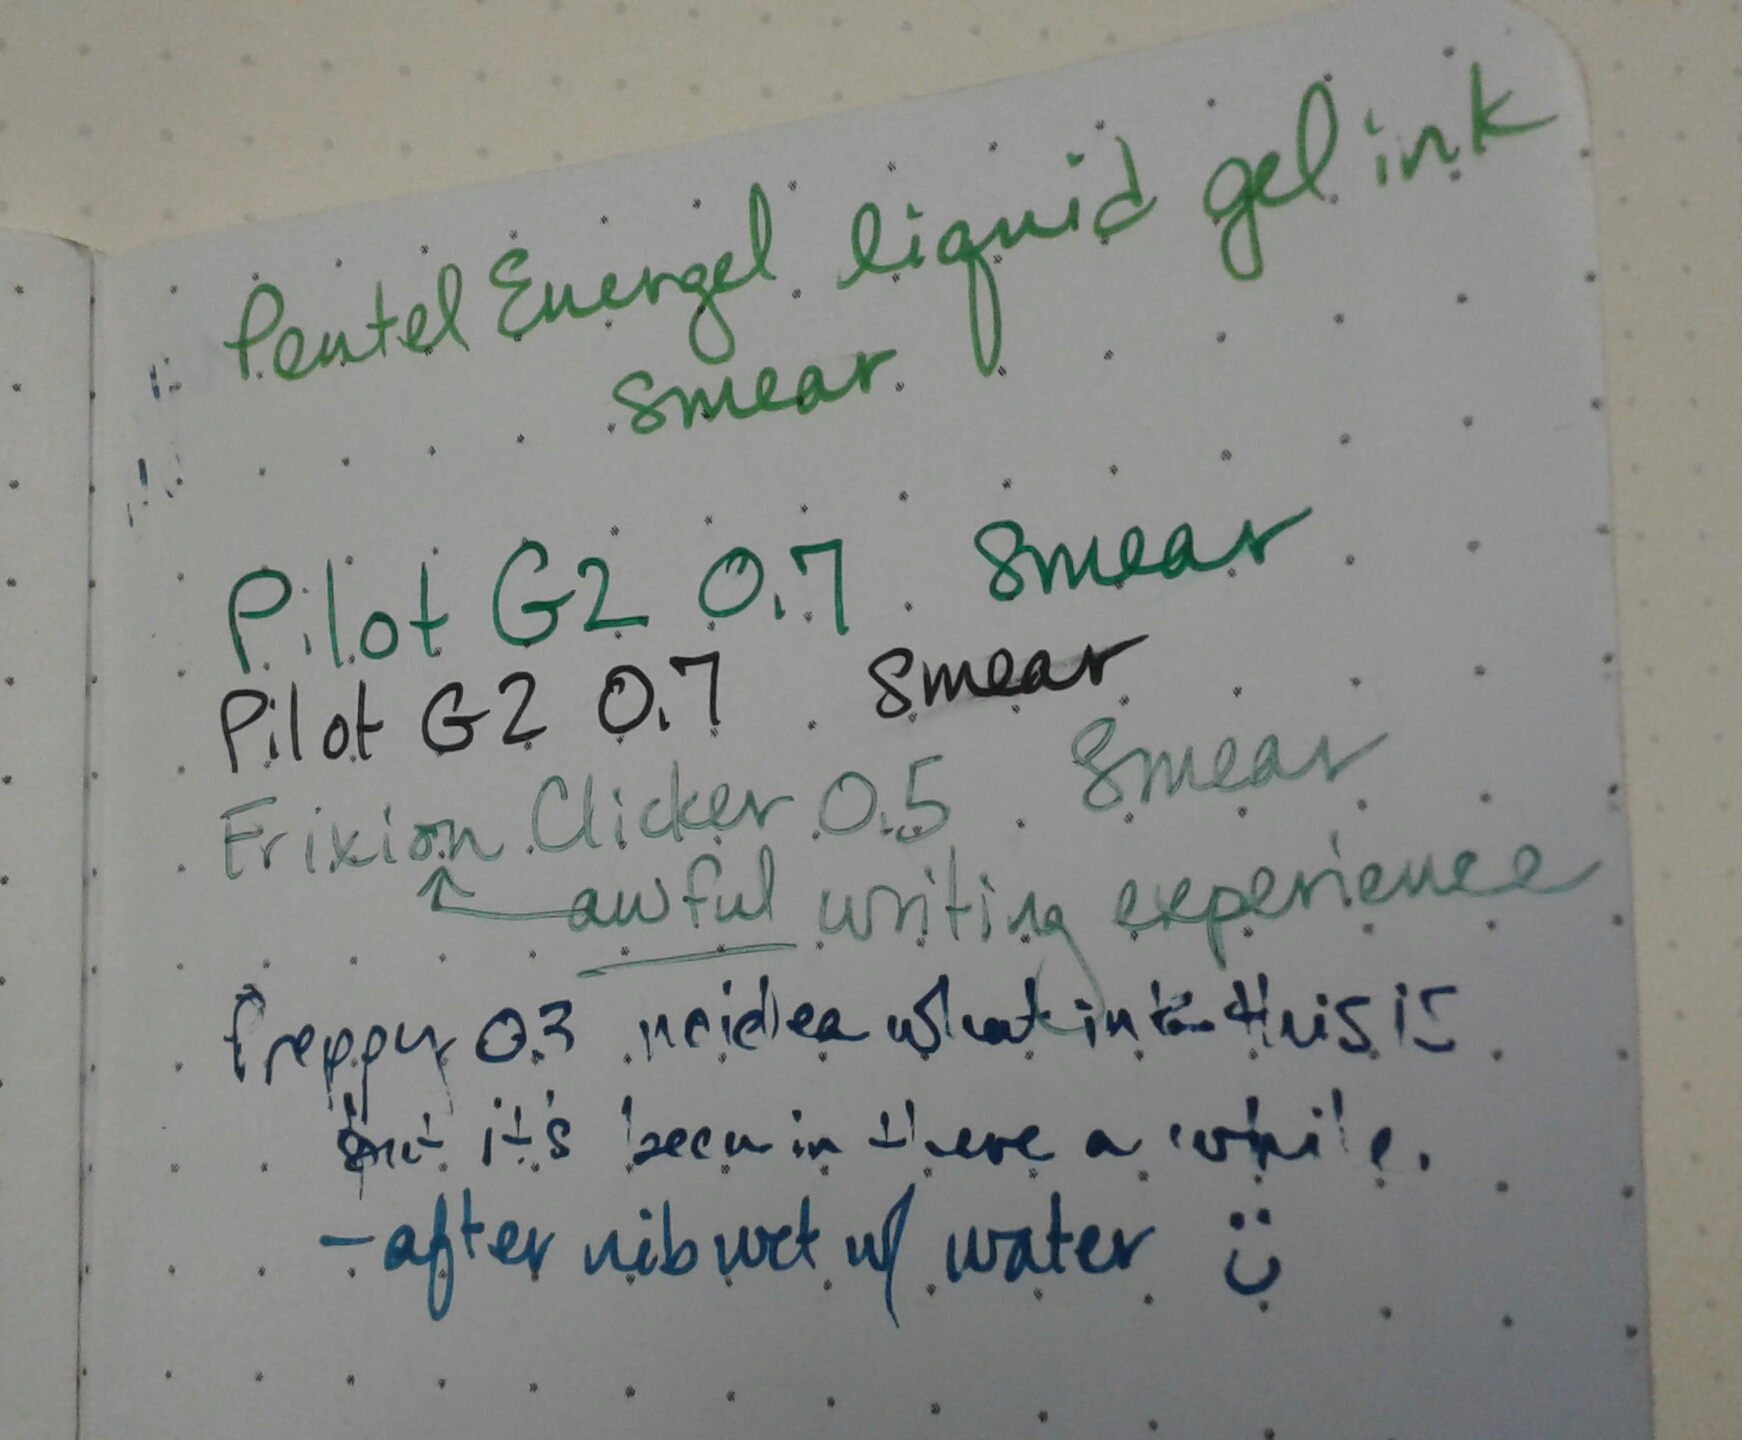 Pentel Energel liquid gel ink
smear
Pilot G2 0.7 smear
Pilot G2 0.7 smear
Frixion Clicker 0.5 smear
awful writing experience
Preppy 0.3 no idea what ink this is
but it's been in there a while.
- after nib wet w/ water :)